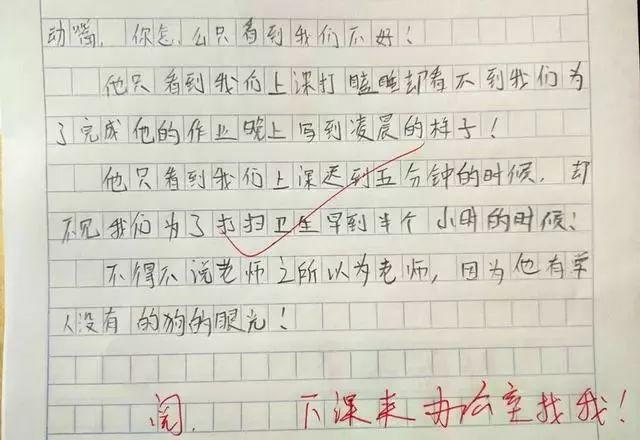 动嘴，你怎么只看到我们不好！
他只看到我们上课打瞌睡却看不到我们为
了完成他的作业晚上写到凌晨的样子！
他只看到我们上课迟到五分钟的时候，却
不见我们为了打扫卫生早到半个小时的时候！
不得不说老师之所以为老师，因为他有常
人没有的狗的眼光！
阅． 下课来办公室找我！